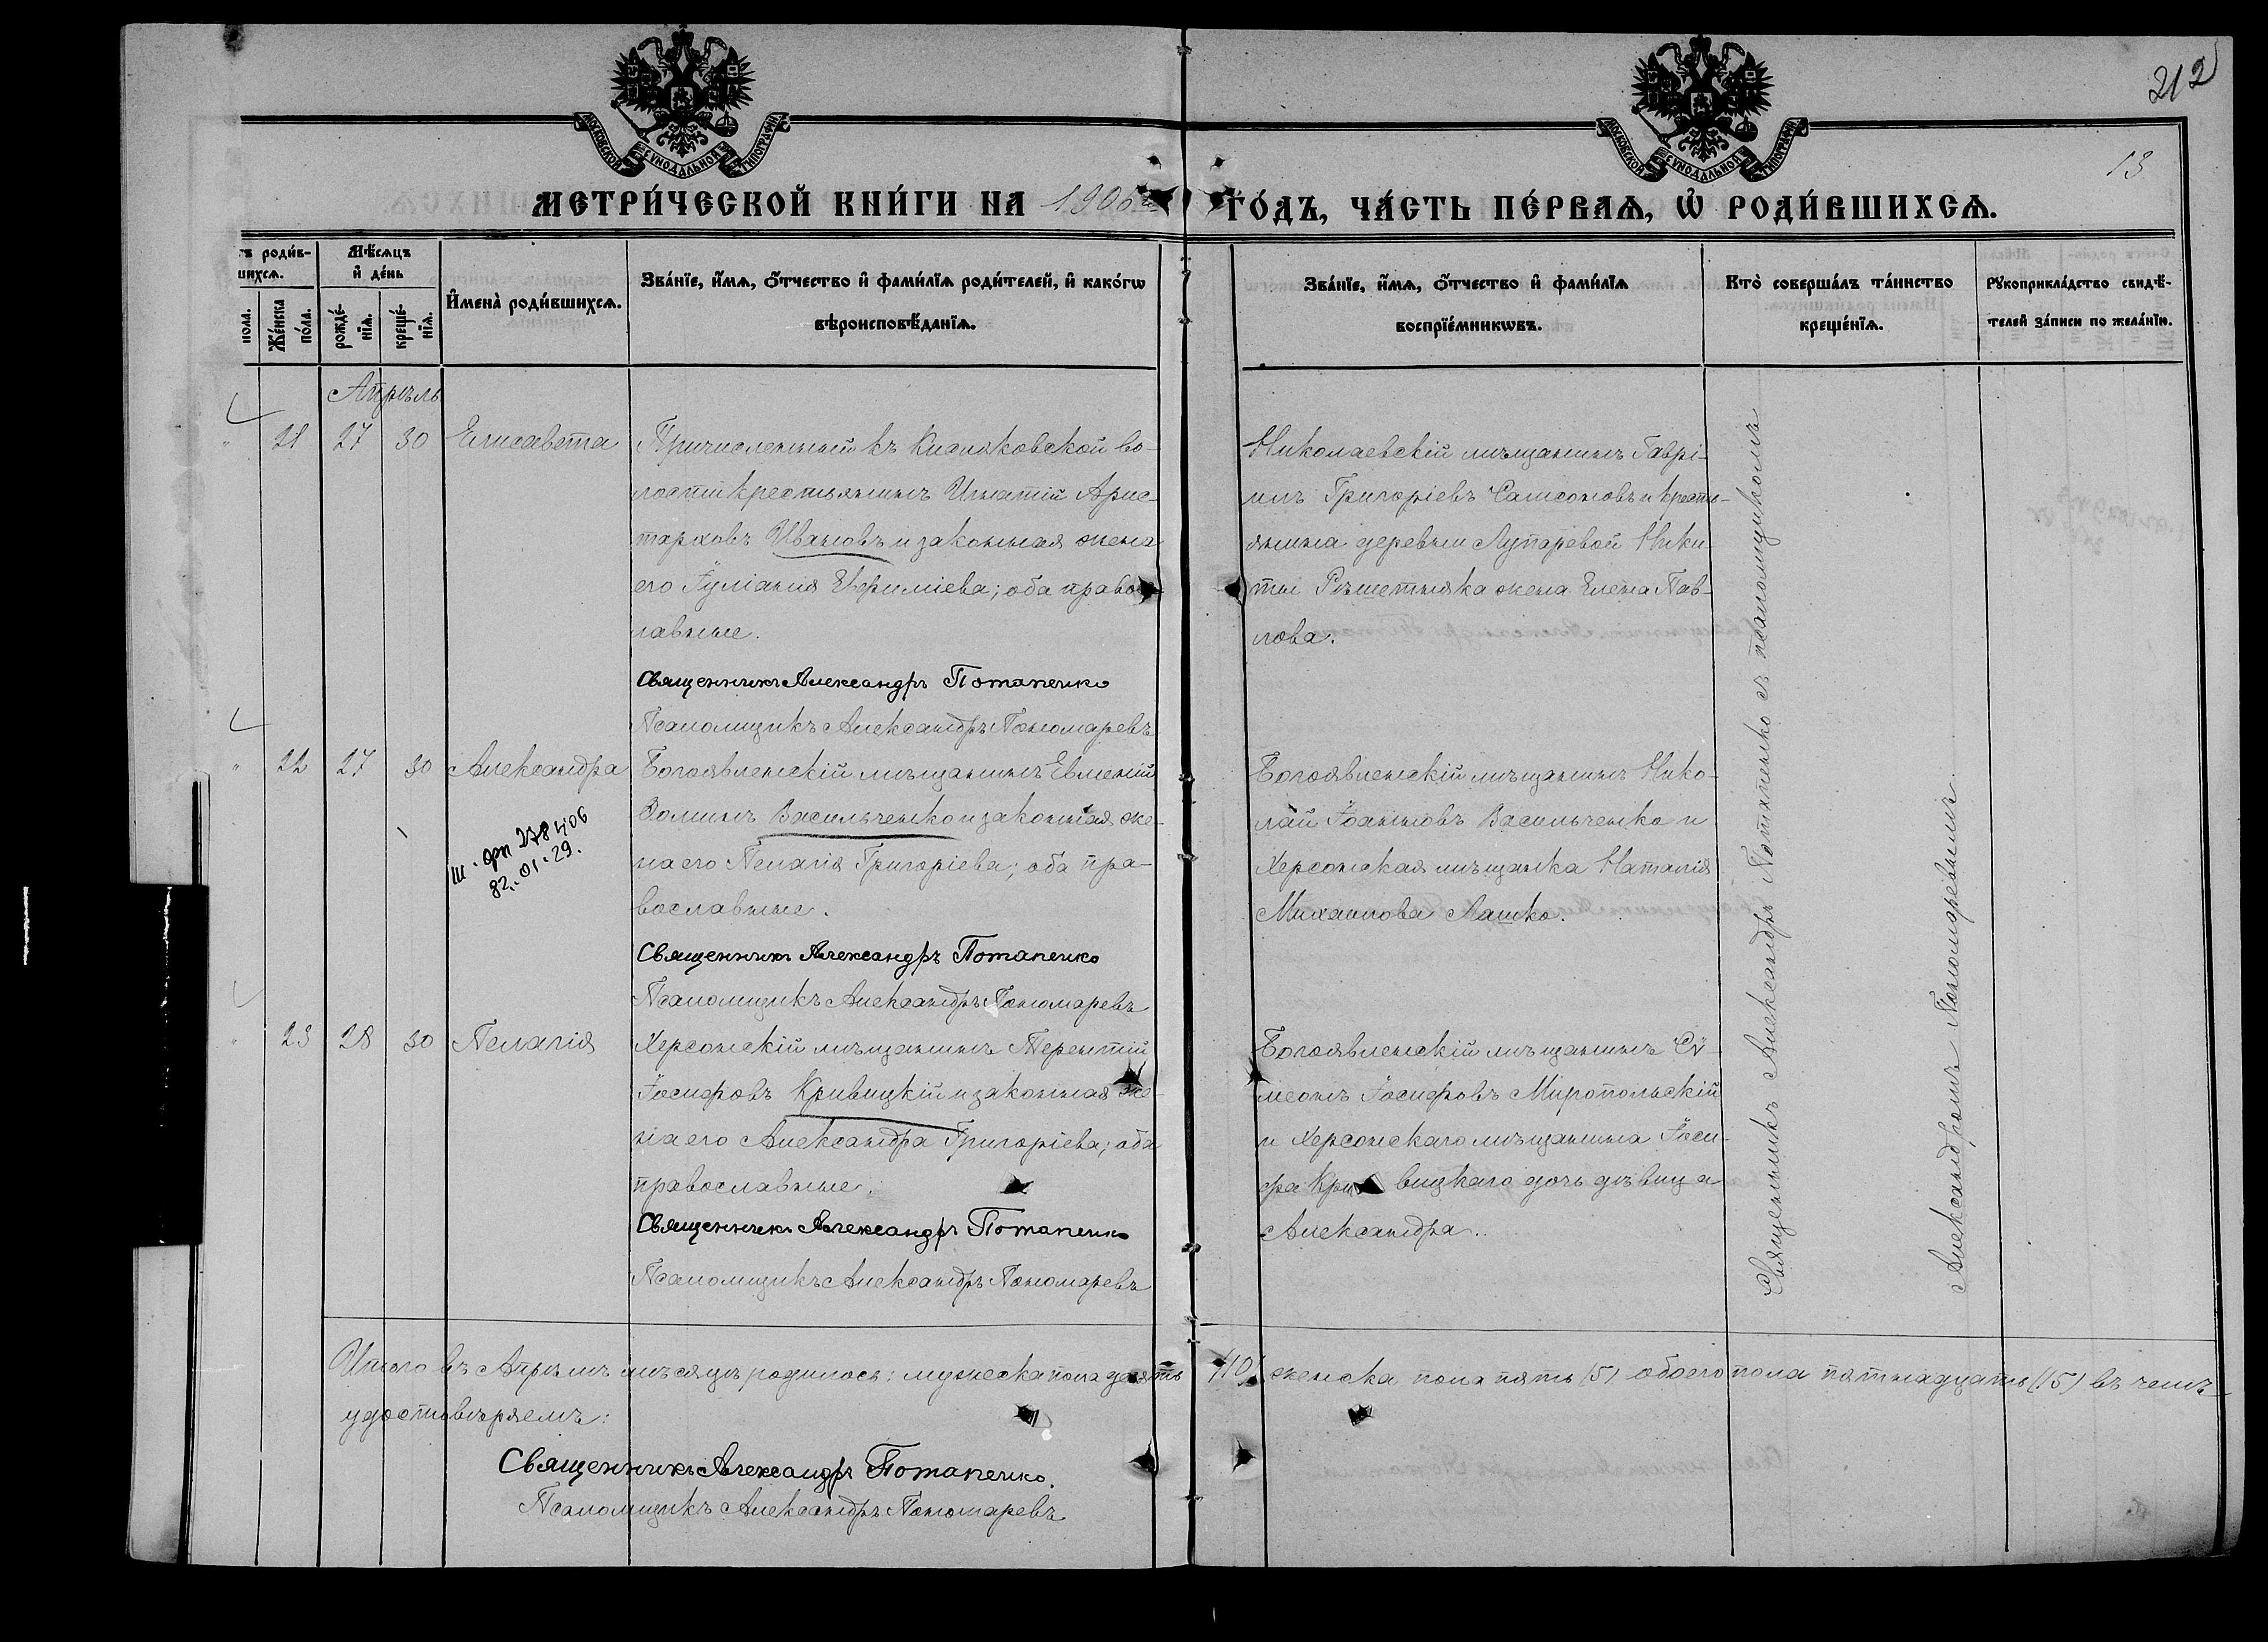 212
13
МОСКОВСКОЙ СѴНОДАЛЬНОЙ ТИПОГРАФІИ
МОСКОВСКОЙ СѴНОДАЛЬНОЙ ТИПОГРАФІИ
МЕТРИ́ЧЕСКОЙ КНИ́ГИ НА 1906 ГО́ДЪ, ЧА́СТЬ ПЕ́РВАѦ, Ѡ҆ РОДИ́ВШИХСѦ.
тъ роди́в-
шихсѧ.
пола.
Же́нска
по́ла.
Мѣ́сѧцъ
и҆ де́нь
рожде́-
нїѧ.
креще́-
нїѧ.
И҆мена̀ роди́вшихсѧ.
Зва́нїе, и҆́мѧ, ѻ҆́тчество и҆ фами́лїѧ роди́телей, и҆ како́гѡ
вѣроисповѣ́данїѧ.
Зва́нїе, и҆́мѧ, ѻ҆́тчество и҆ фами́лїѧ
воспрїе́мникѡвъ.
Кто̀ соверша́лъ та́инство
креще́нїѧ.
Рꙋкоприкла́дство свидѣ́-
телей за́писи по жела́нїю.
Апрѣль
" 21 27 30 Елисавета
Причисленный къ Кисляковской во-
лости крестьянинъ Игнатій Арис-
тарховъ Ивановъ и законная жена
его Іуліанія Евфиміева; оба право-
лавные.
Священникъ Александръ Потапенко
Псаломщикъ Александръ Пономаревъ
Николаевскій мѣщанинъ Гаврі-
илъ Григоріевъ Самсоновъ и кресть-
янина деревни Лупаревой Ники-
ты Рѣшетняка жена Елена Пав-
лова.
" 22 27 30 Александра
Ш. фп 278406
82.01.29.
Богоявленскій мѣщанинъ Евменій
Ѳоминъ Васильченко и законная же-
на его Пелагія Григоріева; оба пра-
вославные.
Священникъ Александръ Потапенко
Псаломщикъ Александръ Пономаревъ
Богоявленскій мѣщанинъ Нико-
лай Іоанновъ Васильченко и
Херсонская мѣщанка Наталія
Михаилова Лашко.
" 23 28 30 Пелагія
Херсонскій мѣщанинъ Терентій
Іосифовъ Кривицкій и законная же-
на его Александра Григоріева; оба
православные.
Священникъ Александръ Потапенко
Псаломщикъ Александръ Пономаревъ
Богоявленскій мѣщанинъ Сѵ-
меонъ Іосифовъ Миропольскій
и Херсонскаго мѣщанина Іоси-
фа Кривицкаго дочь дѣвица
Александра.
Священникъ Александръ Потапенко съ псаломщикомъ
Александромъ Пономаревымъ.
Итого въ Апрѣлѣ мѣсяцѣ родилось: мужеска пола десять (10), женска пола пять (5) обоего пола пятнадцать (15) въ чемъ
удостовѣряемъ:
Священникъ Александръ Потапенко.
Псаломщикъ Александръ Пономаревъ